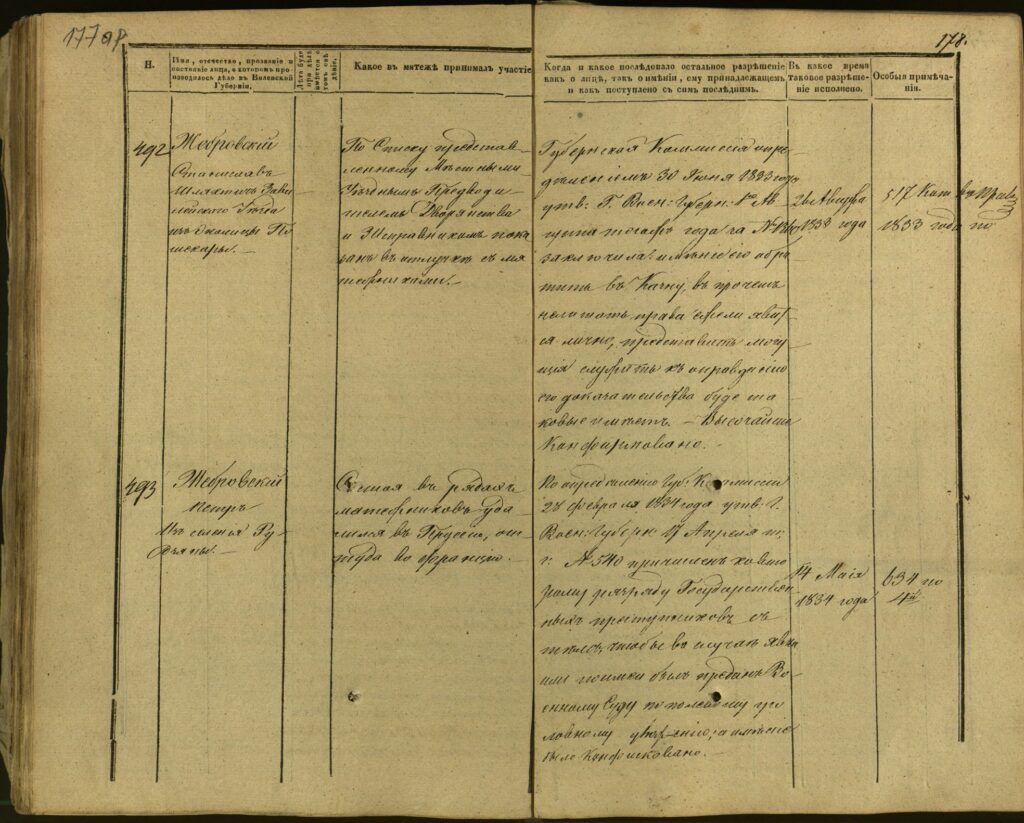 177 об
178.
Н.
Имя, отчество, прозваніе и
состояніе лица, о которомъ про-
изводилось дѣло въ Виленской
Губерніи.
Какое въ мятежѣ принималъ участіе
Когда и какое послѣдовало остальное разрѣшеніе
какъ о лицѣ, такъ о имѣніи, ему принадлежащемъ
и какъ поступлено съ симъ послѣднимъ.
Въ какое время
таковое разрѣше-
ніе исполнено.
Особыя примѣча-
нія.
492
Жебровскій
Станиславъ
Шляхтичь Зави-
лейскаго Уѣзда
изъ околицы По-
шекары.
По Списку представ-
ленному Мѣстными
Уѣзднымъ Предводи-
телемъ Дворянства
и Исправникомъ пока-
занъ въ отлучкѣ съ мя-
тежниками.
Губернская Коммисія опре-
дѣленіемъ 30 Іюня 1833 года
утв: Г. Воен: Губерн: Ав-
густа тогожъ года за №
заключила: имѣніе его обра-
тить въ Казну, въ прочемъ
права если явит-
ся лично, представитъ могу-
щія служить къ оправданію
его доказательства буде та-
ковые имѣетъ. – Высочайше
Конфирмовано. –
Августа
1833 года
517
1833 года по
493
Жебровскій
Петръ
Изъ селенья Ру-
дзяны. –
Состоя въ рядахъ
мятежниковъ уда-
лился въ Пруссію, от-
туда во Францію. –
По опредѣленію Губ: Коммисіи
28 Февраля 1834 года утв: Г.
Воен: Губерн: 17 Апрѣля т:
г: № 540 причисленъ ко вто-
рому разряду Государствен-
ныхъ преступниковъ съ
тѣмъ, чтобы въ случаѣ явки
или поимки былъ преданъ Во-
енному Суду по полевому уго-
ловному уложенію; а имѣніе
было Конфисковано. –
14 Маія
1834 года
634 по